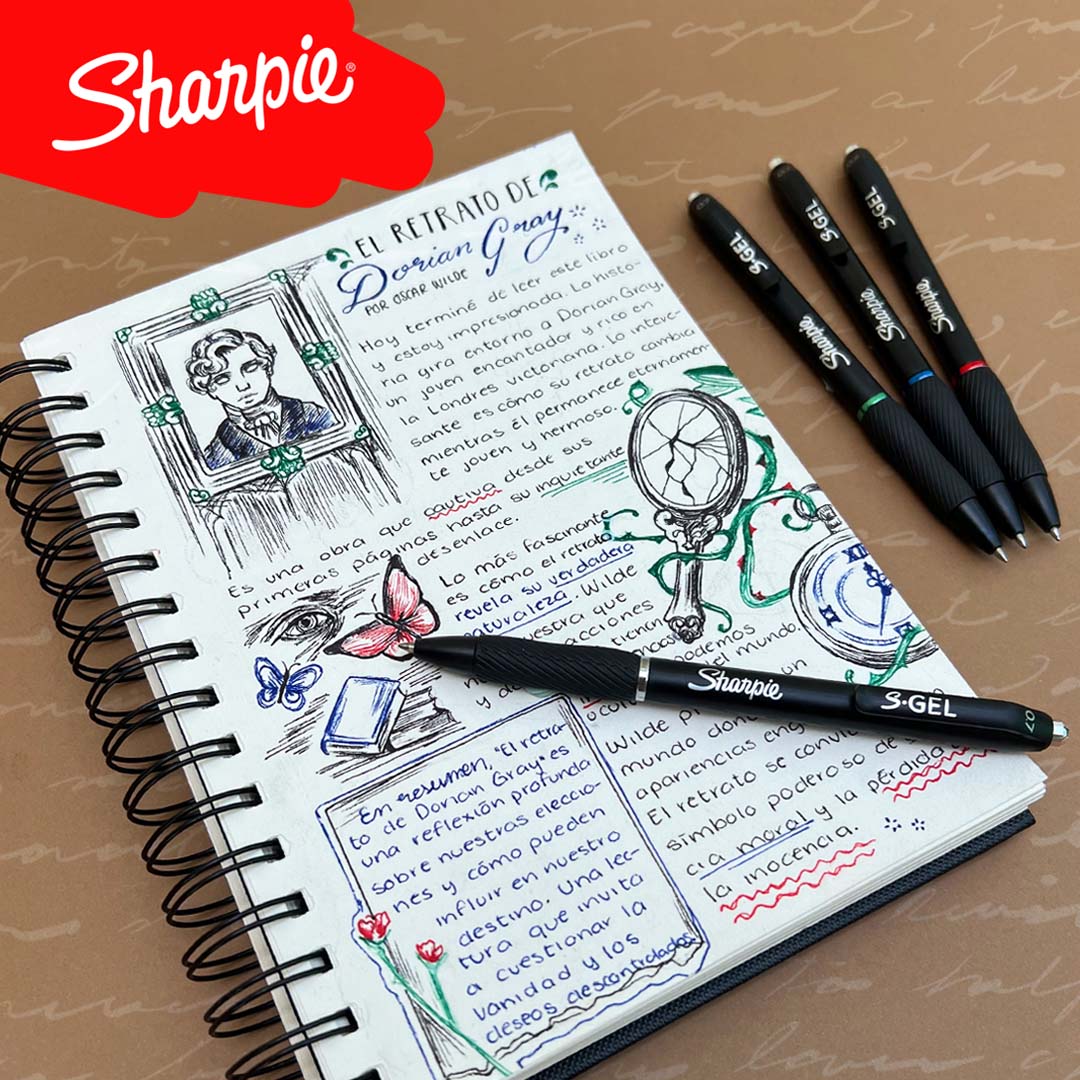 Sharpie®
EL RETRATO DE
Dorian Gray
POR OSCAR WILDE
Hoy terminé de leer este libro
y estoy impresionada. La histo-
ria gira entorno a Dorian Gray,
un joven encantador y rico en
la Londres victoriana. Lo intere-
sante es cómo su retrato cambia
mientras él permanece eternamen-
te joven y hermoso.
Es una obra que cautiva desde sus
primeras páginas hasta su inquietante
desenlace.
Lo más fasanante
es cómo el retrato
revela su verdadera
naturaleza. Wilde
que
acciones
y
podemos
del mundo.
un
Wilde
mundo
apariencias
El retrato se
símbolo poderoso de
cia moral y la pérdida
la inocencia.
En resumen, "El retra-
to de Dorian Gray" es
una reflexión profunda
sobre nuestras eleccio-
nes y cómo pueden
influir en nuestro
destino. Una lec-
tura que invita
a cuestionar la
vanidad y los
deseos descontrolados.
Sharpie S·GEL 0.7
S·GEL Sharpie
S·GEL Sharpie
S·GEL Sharpie